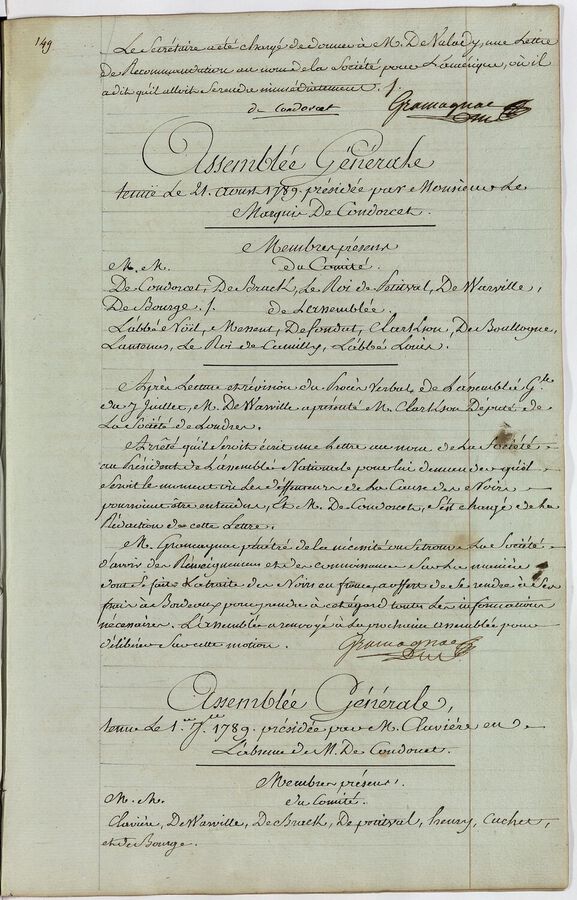 149
Le Secrétaire a été chargé de donner à M. De Nalady, une Lettre
de Recommandation au nom de la Société pour L'amérique, où il
a dit qu'il alloit se rendre immédiatement ./.
de Condorcet Gramagnac
Assemblée Générale
tenue Le 21. Aoust 1789. présidée par Monsieur Le
Marquis De Condorcet.
Membres présens
M. M. du Comité.
De Condorcet, De Bruck, Le Roi de Petitval, De Warville,
De Bourge ./. de Lassemblée.
L'abbé Noël, Messent, De fondut, Clarkson, De Boullogne,
Lantenas, Le Roi de Camilly, L'abbé Louis.
Après Lecture et révision du Procès Verbal de L'assemblée Gle
du 7 Juillet, M. De Warville a présenté M. Clarkson Député de
La Société de Londres.
Arrêté qu'il seroit écrit une Lettre au nom de La Société
au Président de L'assemblée Nationale pour lui demander quel
seroit le moment où Les deffenseurs de La Cause des Noirs
pourroient être entendus, Et M. De Condorcet, s'est chargé de la
Rédaction de cette Lettre.
M. Gramagnac pénétré de la nécessité ou se trouve La Société
d'avoir des Renseignemens et des connoissances sur La manière
dont se faite La traite des Noirs en france, a offert de se rendre à ses
frais à Bordeaux pour prendre à cet égard toutes Les informations
nécessaires. L'assemblée a renvoyé à La prochaine assemblée pour
délibérer sur cette motion. Gramagnac
Assemblée Générale,
tenue Le 1.er 7.bre 1789. présidée par M. Clavière en
L'absence de M. De Condorcet.
Membres présens.
M. M. du Comité.
Clavière, De Warville, De Bruck, De petitval, henry, Cuchet,
et de Bourge.